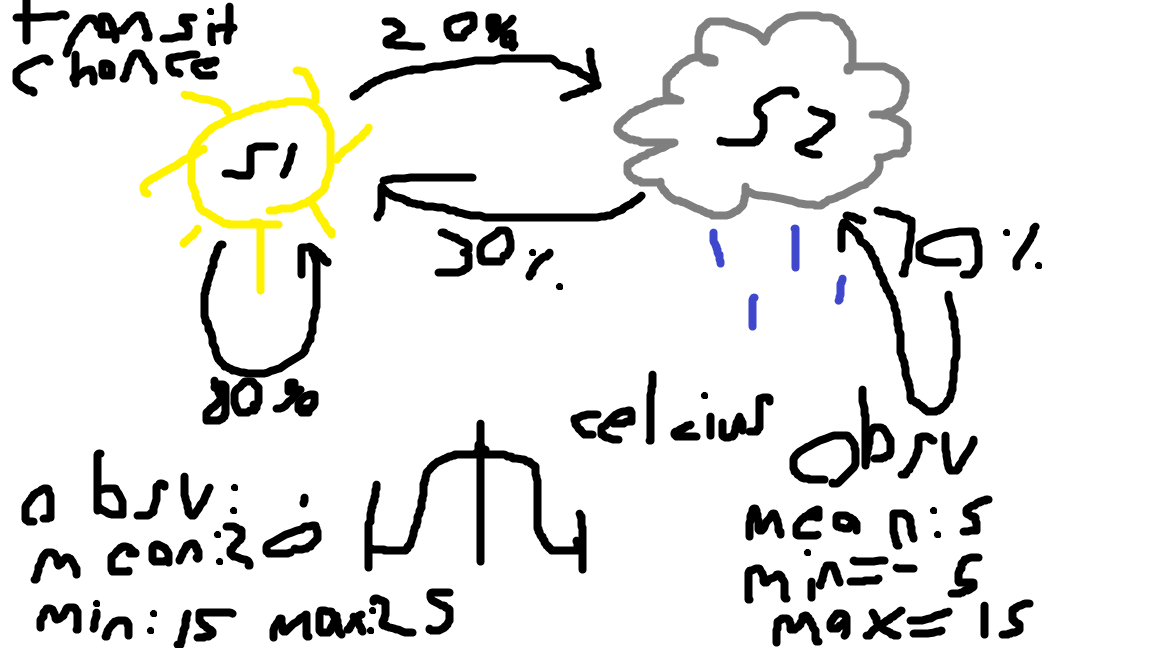 transit
chance
20%
S1
S2
30%
70%
80%
celcius
obsv:
mean:20
min:15 max:25
obsv
mean:5
min=-5
max=15